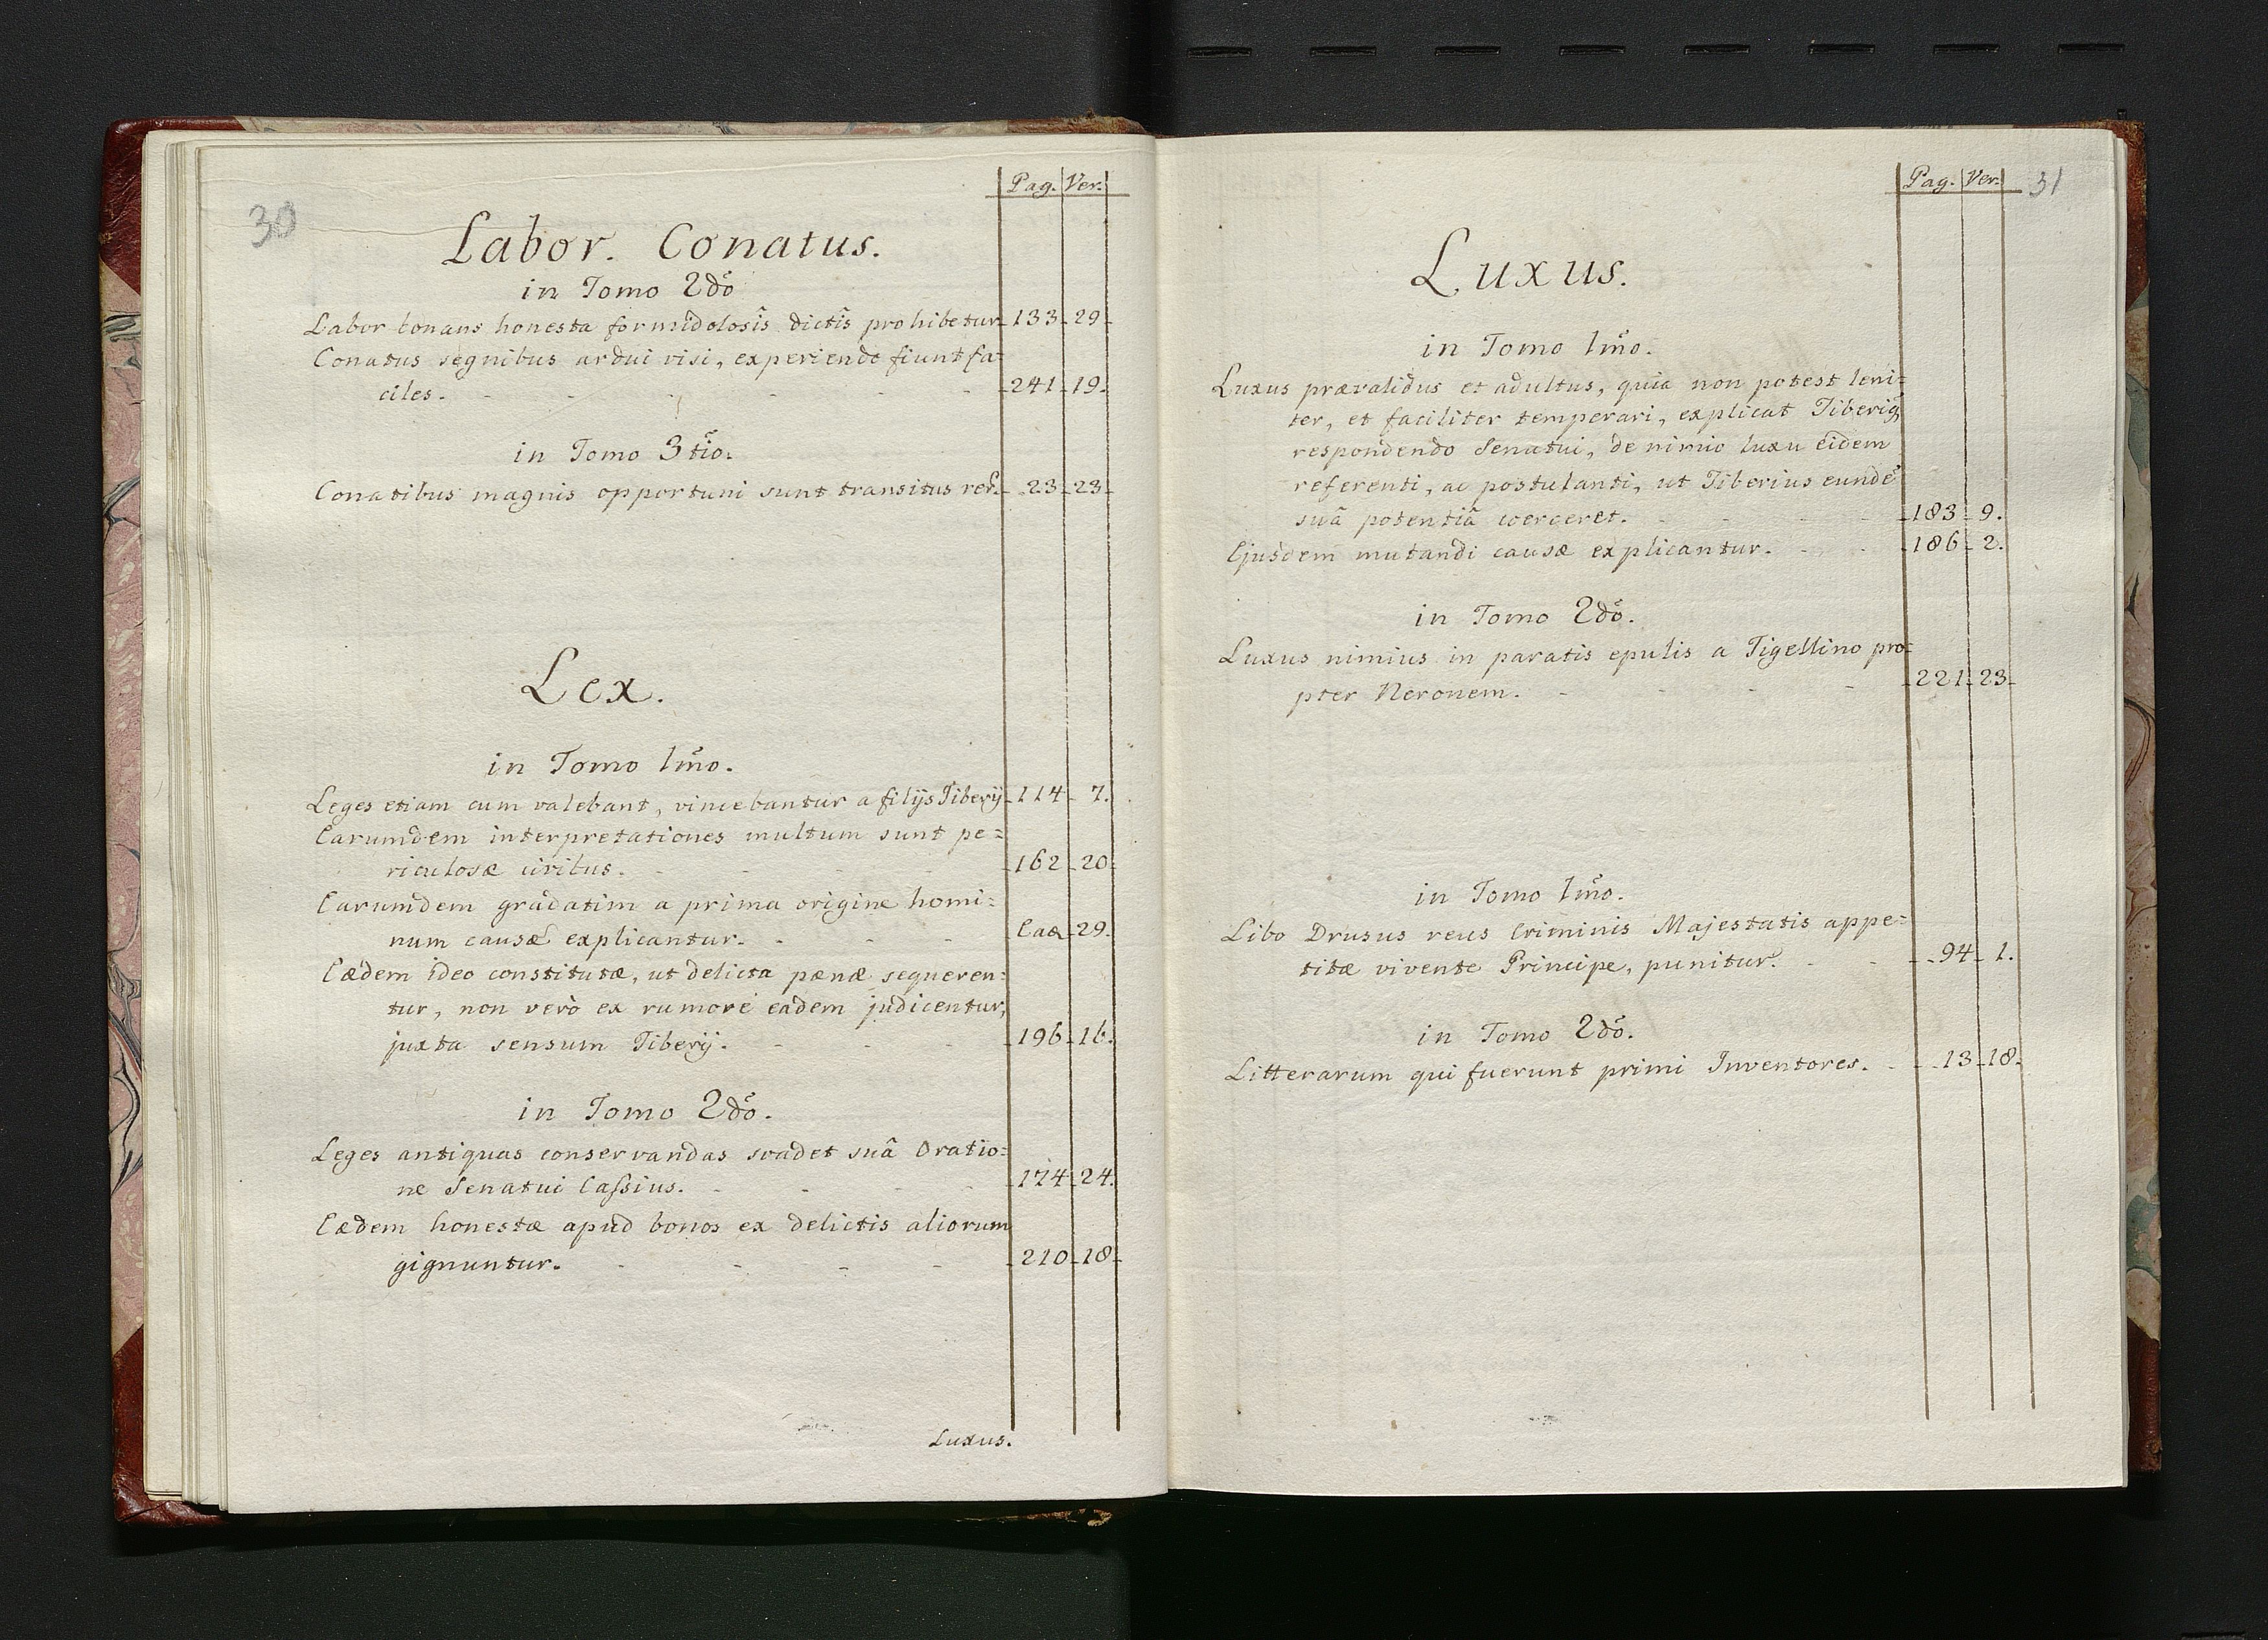 30
Pag. Ver.
Labor. Conatus.
in Tomo 2dõ
Labor conans honesta formidolosis dictis prohibetur 133 29
Conatus segnibus ardui visi, experiendo fiunt fa=
ciles. - - - - 241 19.
in Tomo 3tiõ.
Conatibus magnis opportuni sunt transitus rer. 23 23
Lex.
in Tomo 1mõ.
Leges etiam cum valebant, vincebantur a filijs Tiberij 114 7.
Earumdem interpretationes multum sunt pe=
riculosæ civibus. - - - 162 20.
Earumdem gradatim a prima origine homi=
num causæ explicantur. - - - Eaa 29.
Eædem ideo constitutæ, ut delicta pænæ sequeren=
tur, non verò ex rumore eædem judicentur,
juxta sensum Tiberij. - - - 196 16.
in Tomo 2dõ.
Leges antiquas conservandas svadet suâ Oratio=
ne Senatui Cassius. - - - 174 24.
Eædem honestæ apud bonos ex delictis aliorum
gignuntur. - - - - 210 18
Luxus.
Pag. Ver. 31
Luxus.
in Tomo 1mõ.
Luxus prævalidus et adultus, quia non potest leni=
ter, et faciliter temperari, explicat Tiberig
respondendo Senatui, de nimio luxu eidem
referenti, ac postulanti, ut Tiberius eundẽ
suâ potentiâ coerceret. - - - 183 9.
Ejusdem mutandi causæ explicantur. - - 186 2.
in Tomo 2dõ.
Luxus nimius in paratis epulis a Tigellino pro=
pter Neronem. - - - - 221 23
in Tomo 1mõ.
Libo Drusus reus Criminis Majestatis appe=
titæ vivente Principe, punitur. - - 94 1.
in Tomo 2dõ.
Litterarum qui fuerunt primi Inventores. - 13 18.